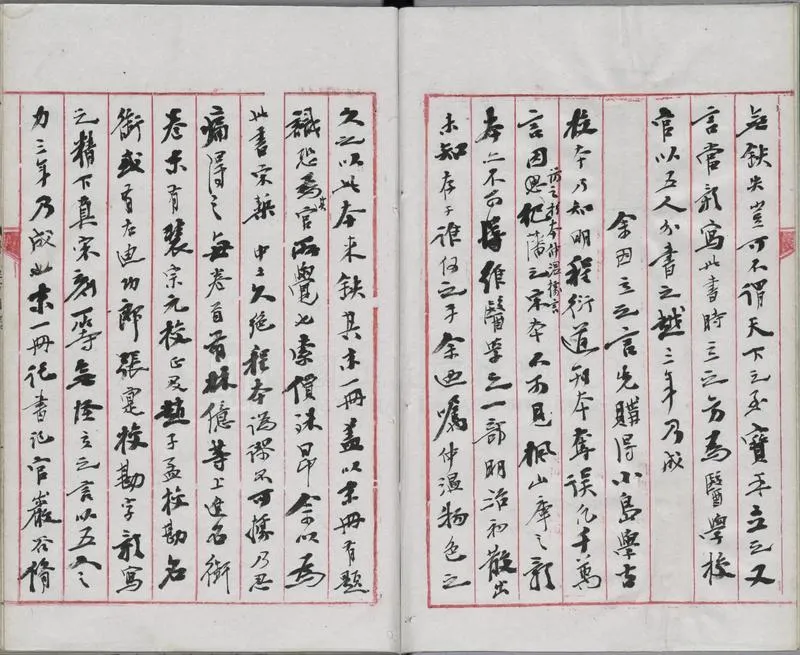 無缺失豈可不謂天下之至寶乎立之又
言當影寫此書時立之方爲醫學校
官以五人分書之越三年乃成
余因立之言先購得小島學古
校本乃知明程衍道刊本奪誤凡千萬
言因思祀藩之宋本不可見楓山庫之影
訪之於森仲温據言
本亦不可得維醫學之一部明治初散出
未知存于誰何之手余迺囑仲温物色之
久之以此本來缺其末一冊蓋以末冊有題
識恐爲官所覺也索價殊昂余以爲
其
此書宋槧中土久絕程本譌謬不可據乃忍
痛得之每卷首有林億等上進名銜
卷末有裴宗元校正及趙子孟校勘名
銜或有右迪功郎張寔校勘字影寫
之精下真宋刻一等無怪立之言以五人之
力三年乃成此末一冊記書記官巖谷脩